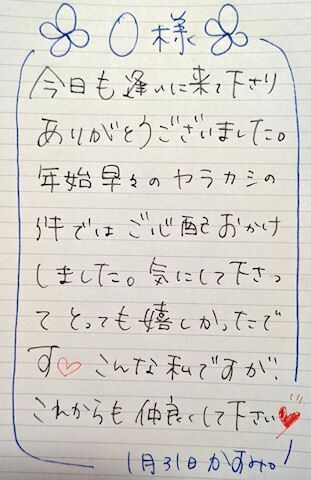 〇様
今日も逢いに来て下さり
ありがとうございました。
年始早々のヤラカシの
件ではご心配おかけ
しました。気にして下さっ
てとっても嬉しかったで
す♡こんな私ですが、
これからも仲良くして下さい♥
1月31日かすみ。